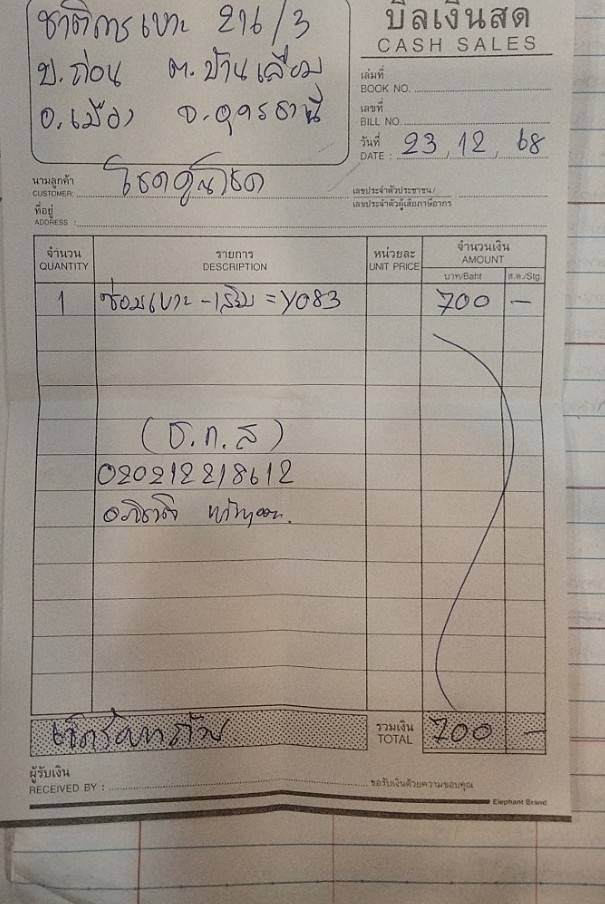 ชาติการเบาะ 216/3
บ.ก่อน ต.บ้านเลื่อม
อ.เมือง จ.อุดรธานี
บิลเงินสด
CASH SALES
เล่มที่
BOOK NO.
เลขที่
BILL NO.
วันที่
DATE : 23, 12, 68
นามลูกค้า
CUSTOMER โชคคูณโชค
เลขประจำตัวประชาชน/
เลขประจำตัวผู้เสียภาษีอากร
ที่อยู่
ADDRESS :
จำนวน รายการ หน่วยละ จำนวนเงิน
QUANTITY DESCRIPTION UNIT PRICE AMOUNT
บาท/Baht ส.ต./Stg.
1 ซ่อมเบาะ - เสริม = Y083 700 -
(ธ.ก.ส)
020212218612
เจ็ดร้อยบาทถ้วน รวมเงิน
TOTAL 700 -
ผู้รับเงิน
RECEIVED BY : ขอรับเงินด้วยความขอบคุณ
Elephant Brand